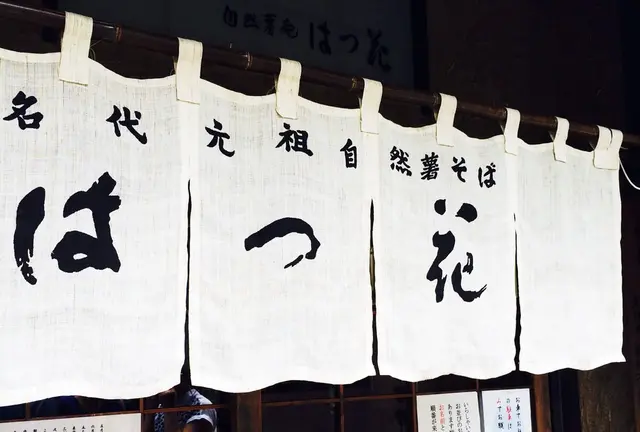 自然薯庵 はつ花
名代 元祖 自然薯そば
はつ花